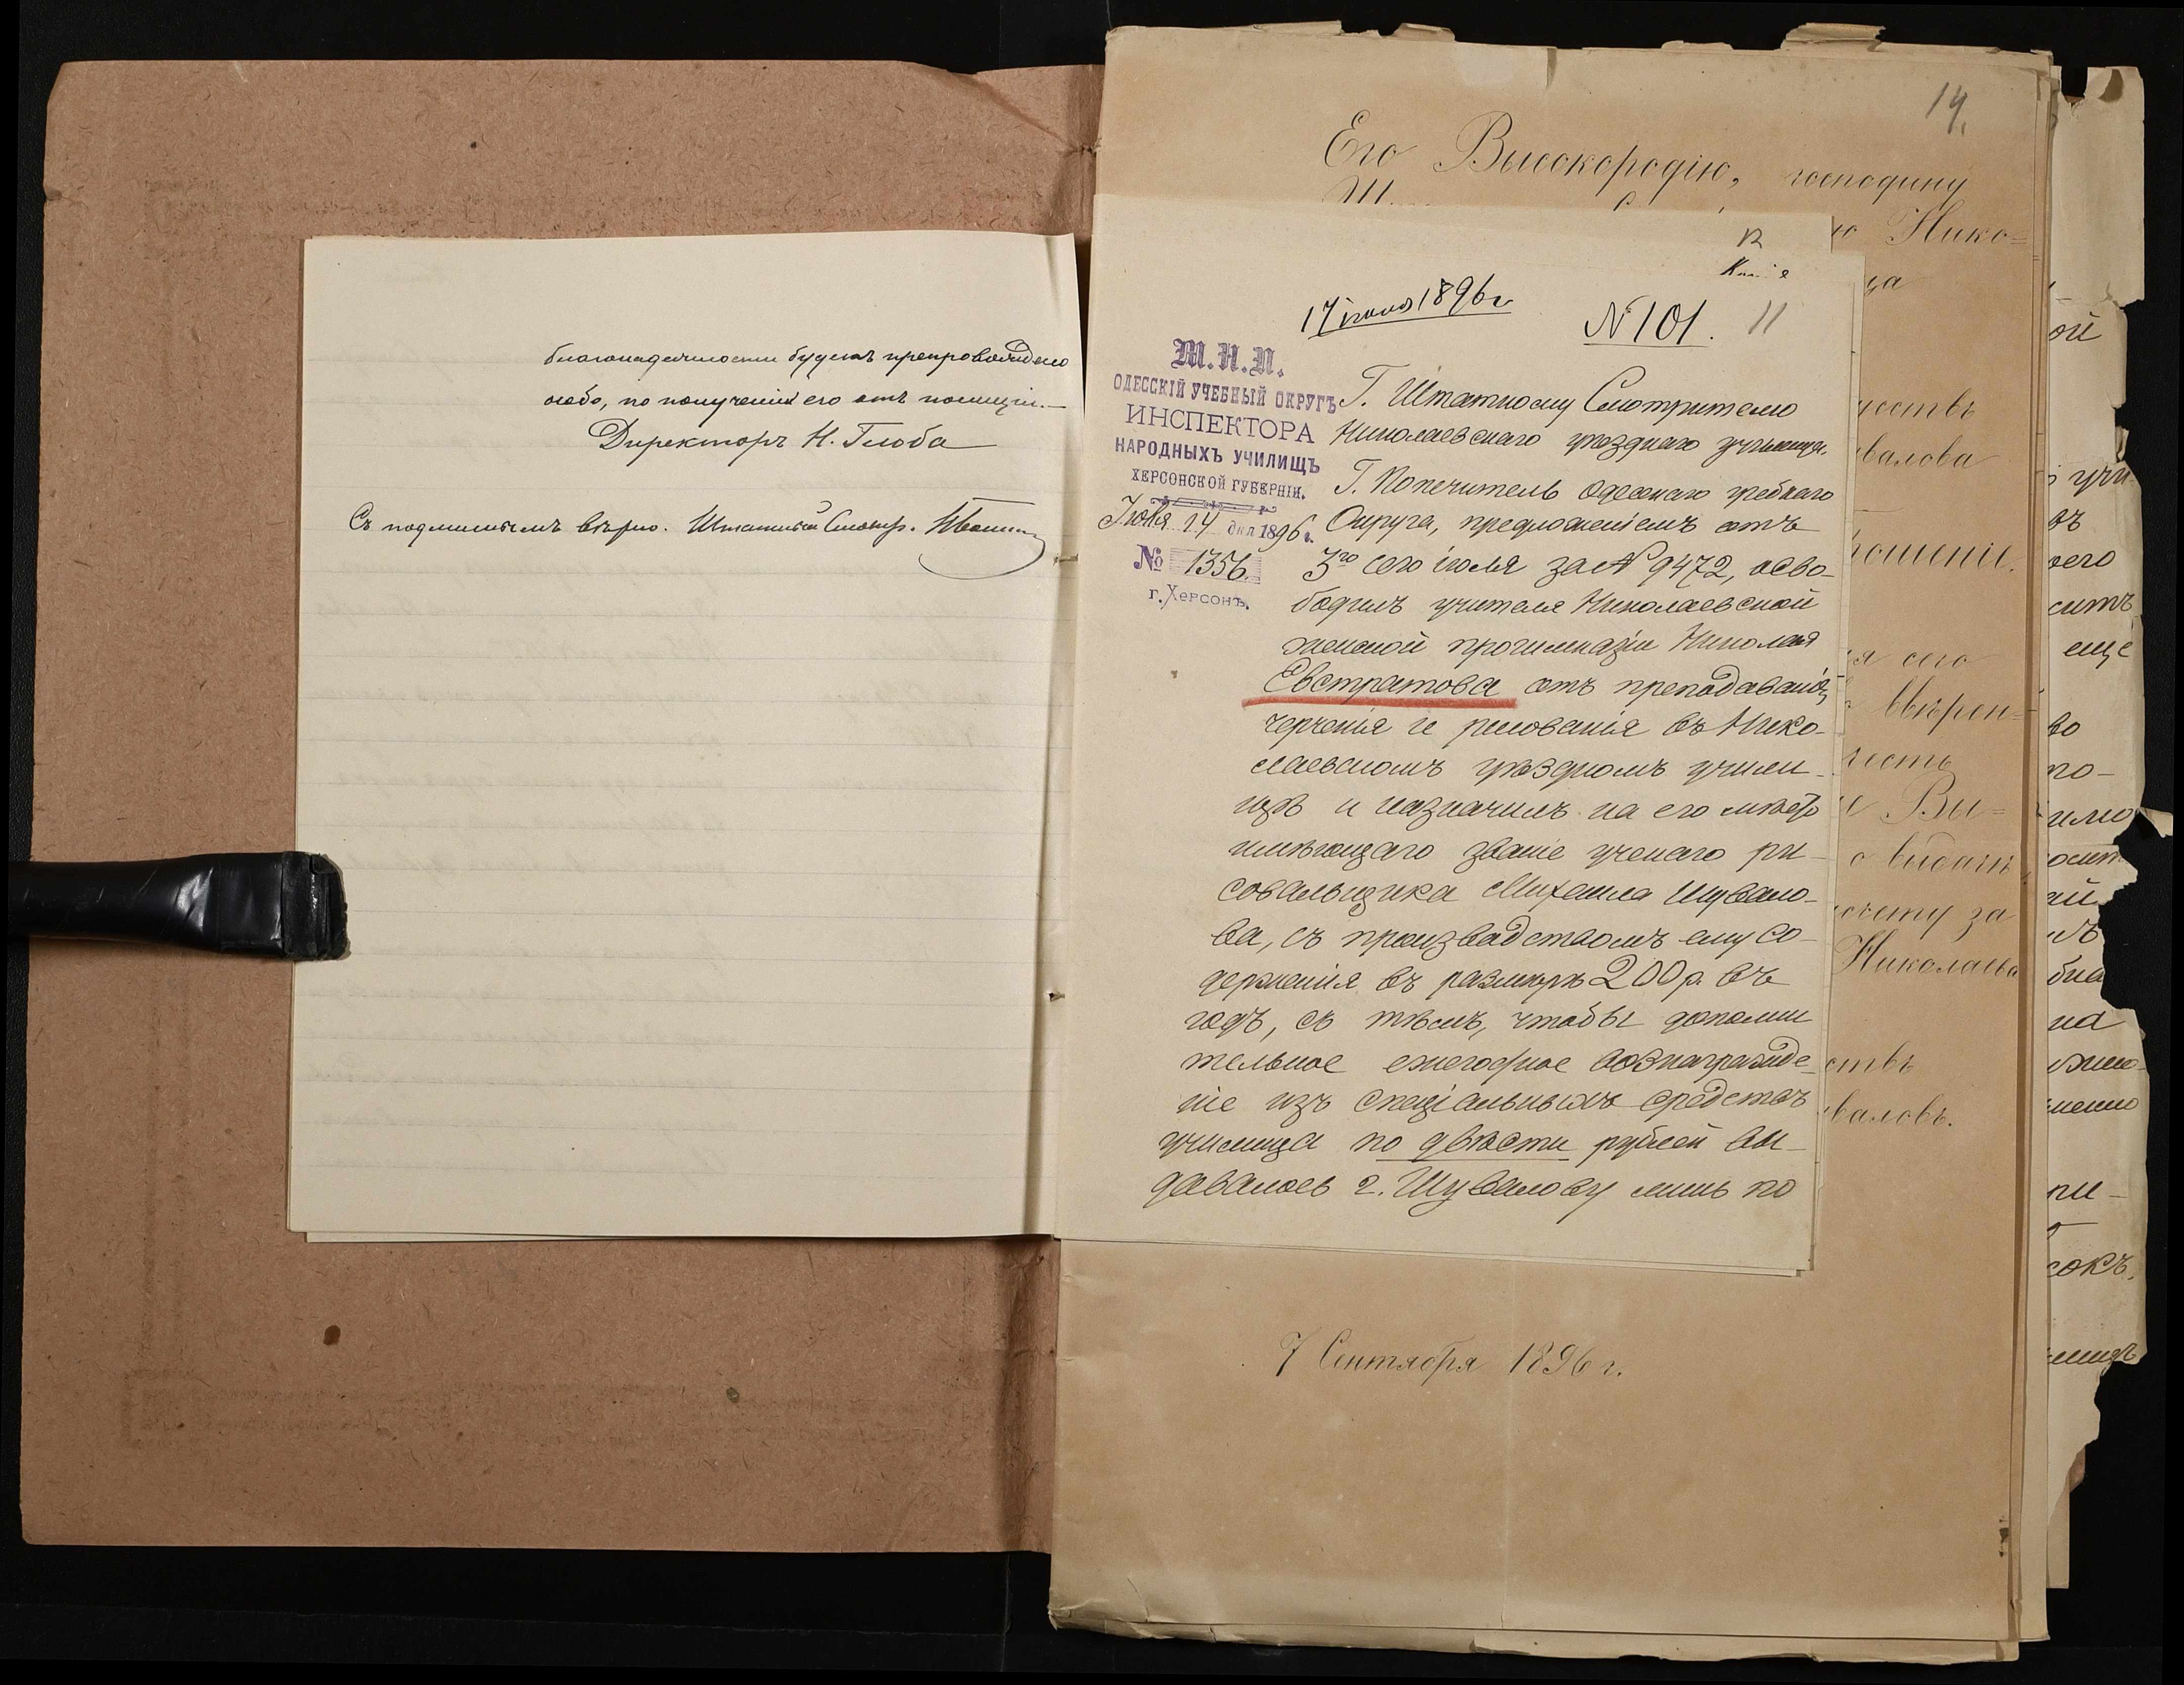 благонадежности будетъ препровождено
особо, по полученіи его отъ полиціи.
Директоръ Н. Глоба
Съ подлиннымъ вѣрно. Штатный Смотр.
14.
Его Высокородію, господину
Нико=
17 іюля 1896 г
№ 101. 11
М.Н.П.
ОДЕССКІЙ УЧЕБНЫЙ ОКРУГЪ
ИНСПЕКТОРА
НАРОДНЫХЪ УЧИЛИЩЪ
ХЕРСОНСКОЙ ГУБЕРНІИ.
Іюля 14 дня 1896 г.
№ 1356.
г. Херсонъ.
Г. Штатному Смотрителю
Николаевскаго уѣзднаго училища.
Г. Попечитель Одесскаго Учебнаго
Округа, предложеніемъ отъ
3го сего іюля за № 9472, осво-
бодилъ учителя Николаевской
женской прогимназіи Николая
Евстратова отъ преподаванія
черченія и рисованія въ Нико-
лаевскомъ уѣздномъ учили-
щѣ и назначилъ на его мѣсто
имѣющаго званіе ученаго ри-
совальщика Михаила Шувало-
ва, съ производствомъ ему со-
держанія въ размѣрѣ 200 р. въ
годъ, съ тѣмъ, чтобы дополни
тельное ежегодное вознагражде-
ніе изъ спеціальныхъ средствъ
училища по двѣсти рублей вы-
давалось г. Шувалову лишь по
ввѣрен=
Николаева
7 Сентября 1896 г.